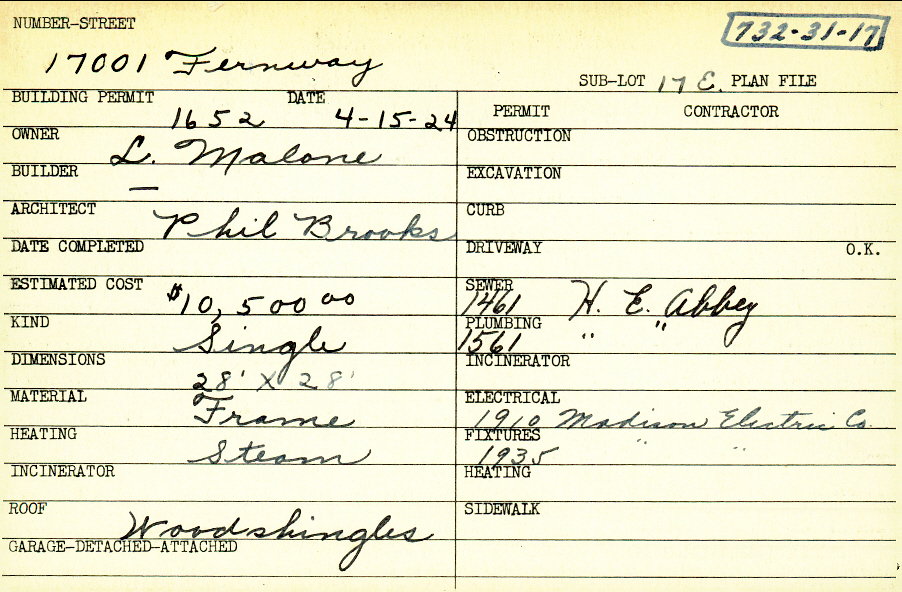 NUMBER-STREET
732-31-17
17001 Fernway
SUB-LOT 17 E. PLAN FILE
BUILDING PERMIT DATE
1652 4-15-24
OWNER
L. Malone
BUILDER
—
ARCHITECT
Phil Brooks
DATE COMPLETED
ESTIMATED COST
$10,500 00
KIND
Single
DIMENSIONS
28' X 28'
MATERIAL
Frame
HEATING
Steam
INCINERATOR
ROOF
Woodshingles
GARAGE-DETACHED-ATTACHED
PERMIT CONTRACTOR
OBSTRUCTION
EXCAVATION
CURB
DRIVEWAY O.K.
SEWER
1461 H. E. Abbey
PLUMBING
1561 " "
INCINERATOR
ELECTRICAL
1910 Madison Electric Co.
FIXTURES
1935 " "
HEATING
SIDEWALK